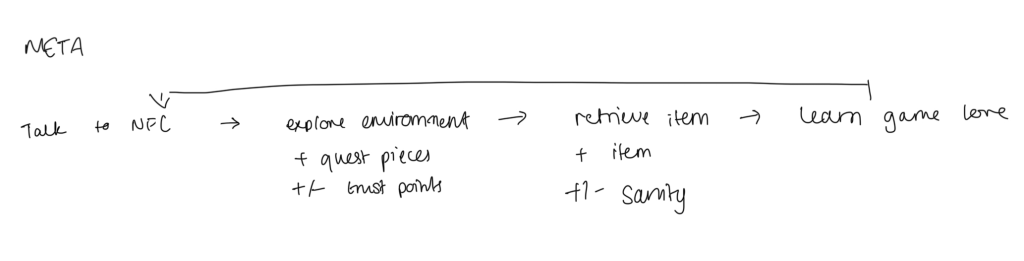 META
Talk to NPC → explore environment → retrieve item → learn game lore
+ quest pieces + item
+/- trust points +/- Sanity